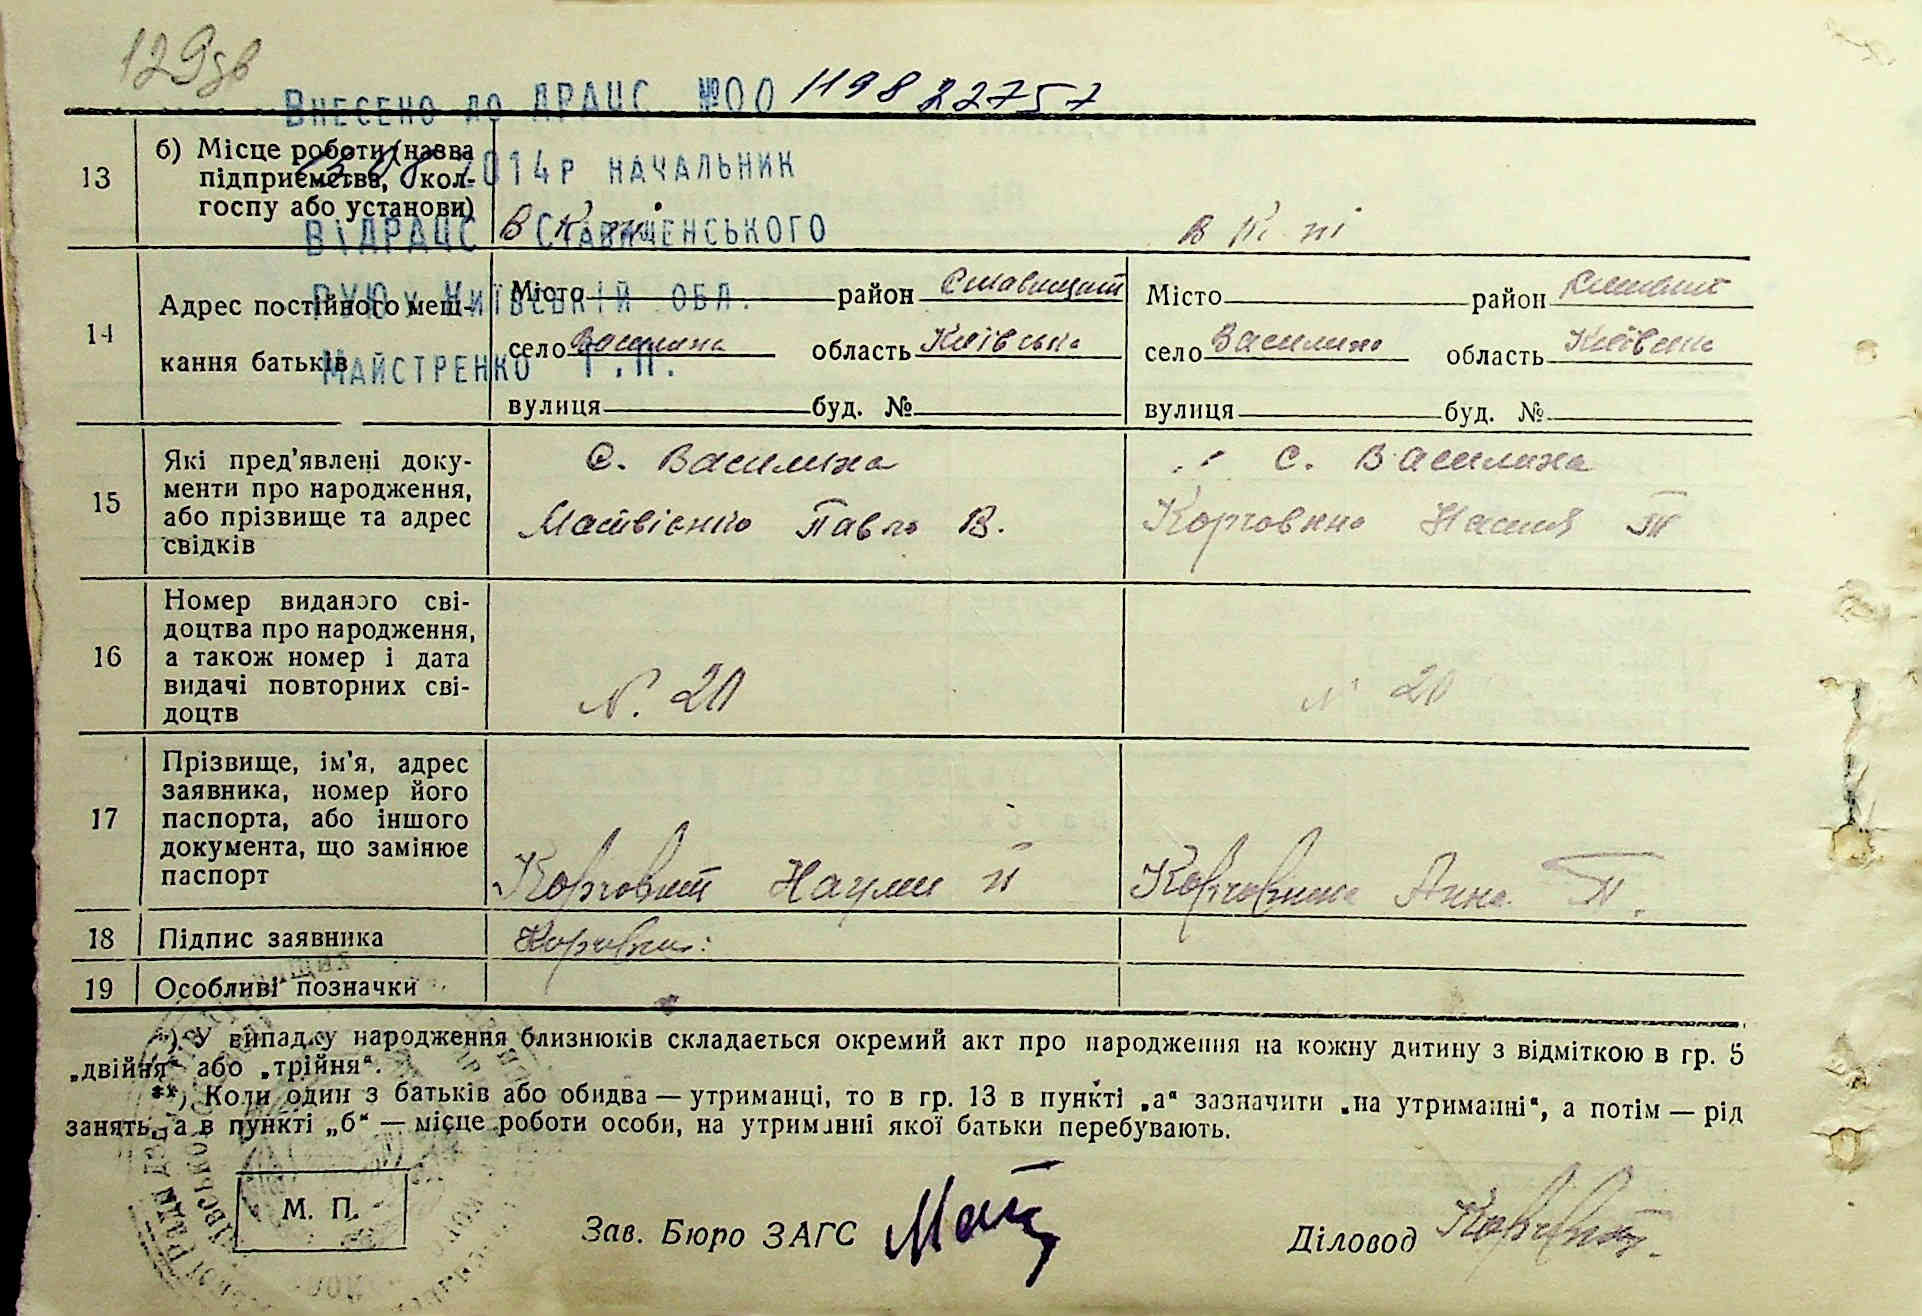 129зв
Внесено до ДРАЦС №00 119822757
2014р начальник
ВДРАЦС Ставищенського
РУЮ у Київській обл.
Майстренко Г.П.
13 б) Місце роботи (назва
підприємства, кол-
госпу або установи)
в к-пі в к-пі
14 Адрес постійного меш-
кання батьків
Місто район Ставищат Місто район
село Василиха область Київська село Василиха область Київська
вулиця буд. № вулиця буд. №
15 Які пред'явлені доку-
менти про народження,
або прізвище та адрес
свідків
с. Василиха с. Василиха
Матвієнко Павло В. Корчовна Настя П
16 Номер виданого сві-
доцтва про народження,
а також номер і дата
видачі повторних сві-
доцтв
N. 20 N 20
17 Прізвище, ім'я, адрес
заявника, номер його
паспорта, або іншого
документа, що замінює
паспорт
Корчовит Наум Корчовина Анна П.
18 Підпис заявника
19 Особливі позначки
*) У випадку народження близнюків складається окремий акт про народження на кожну дитину з відміткою в гр. 5
„двійня“ або „трійня“.
**) Коли один з батьків або обидва — утриманці, то в гр. 13 в пункті „а“ зазначити „на утриманні“, а потім — рід
занять, а в пункті „б“ — місце роботи особи, на утриманні якої батьки перебувають.
М. П.
Зав. Бюро ЗАГС Діловод